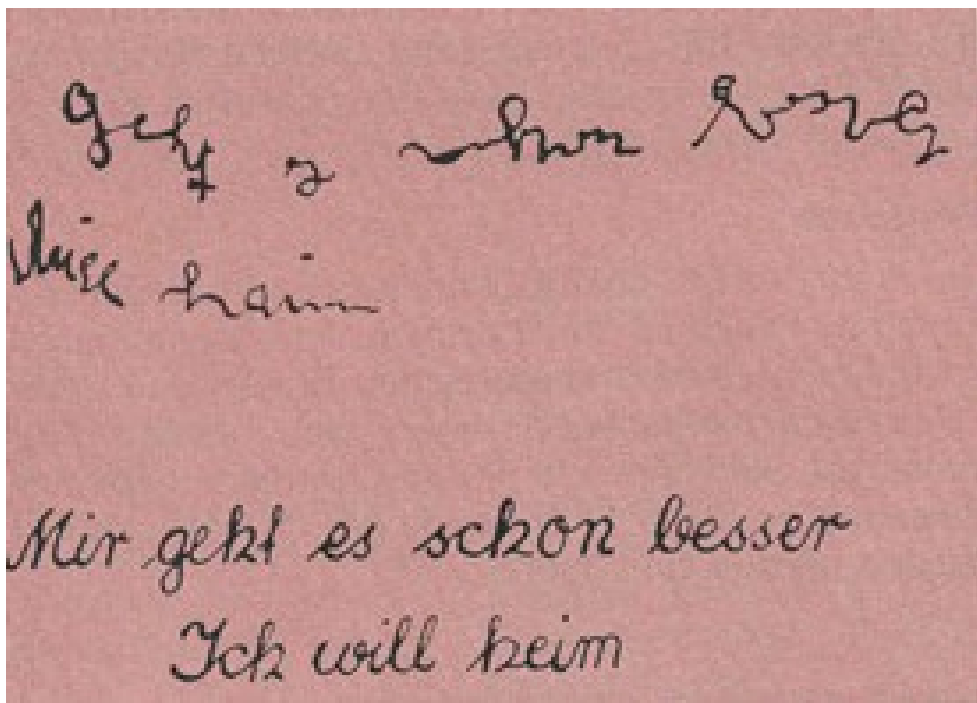 geht s schon besser
will haim
Mir geht es schon besser
Ich will heim